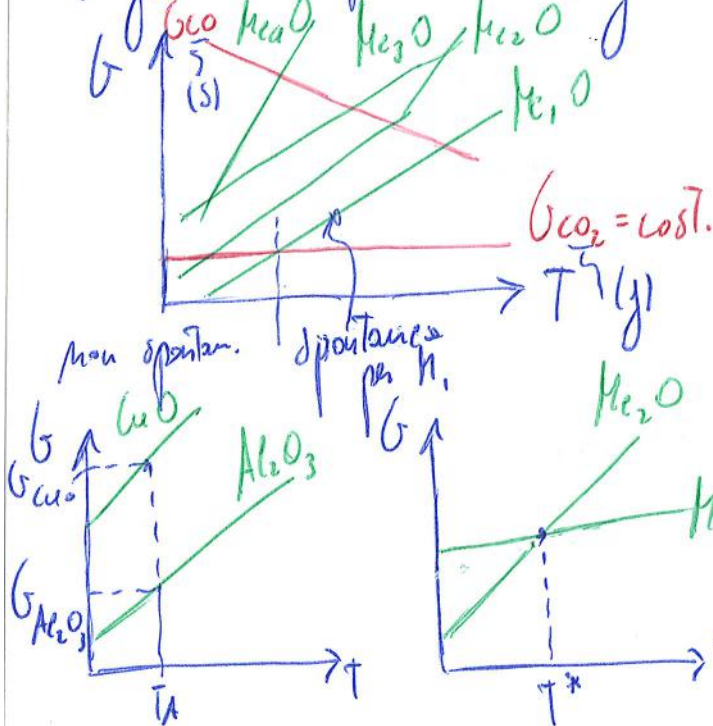 G_CO
Me₄O
Me₃O
Me₂O
Me₁O
G
(s)
G_CO₂ = cost.
T
(g)
non spontan.
spontanea
per M₁
G
CuO
Al₂O₃
G_CuO
G_Al₂O₃
T_A
T
G
Me₂O
T*